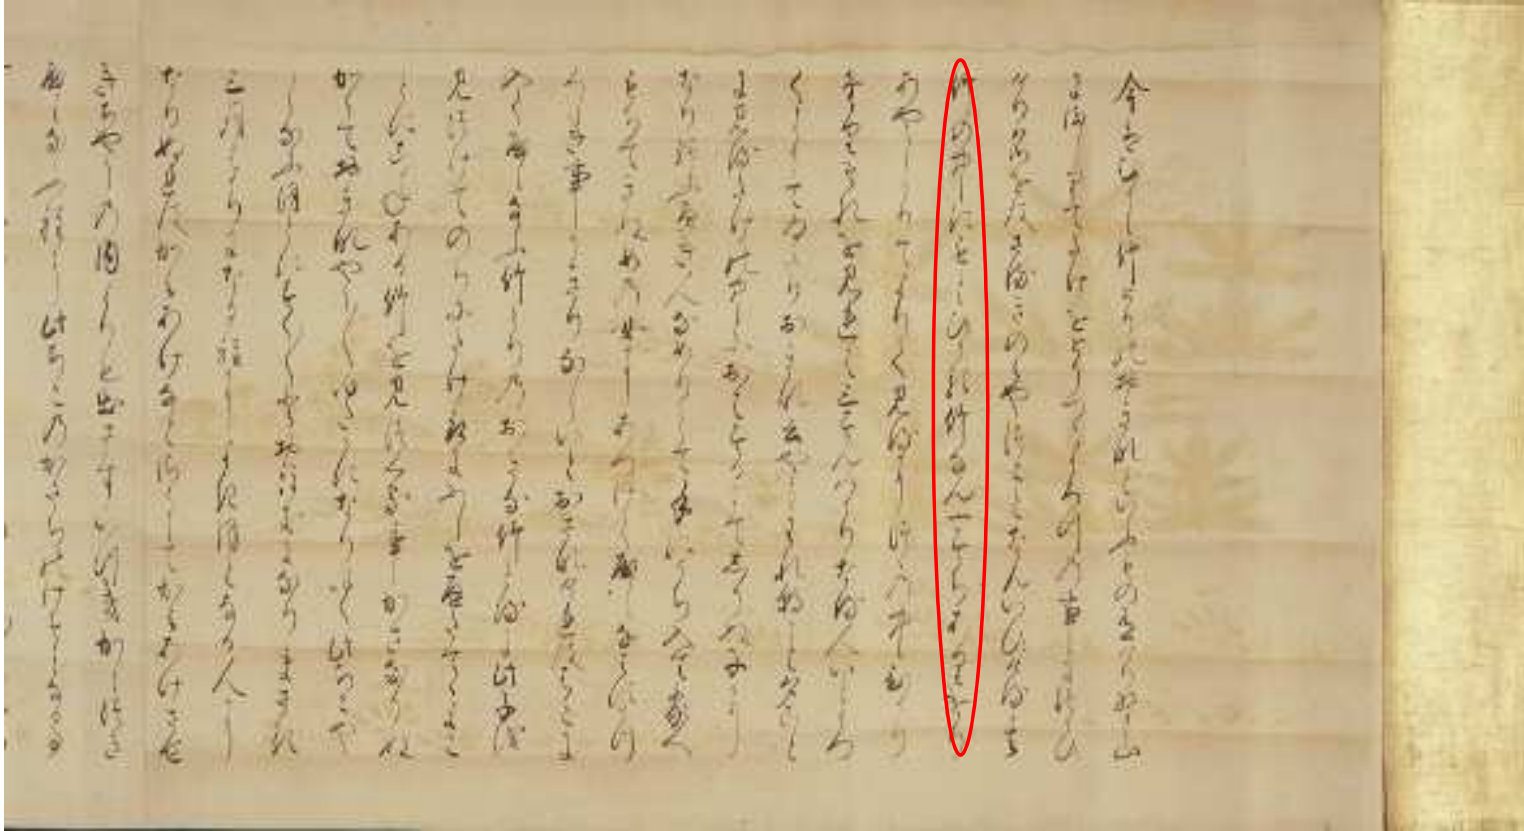 今はむかし竹とりのおきなといふもの有けり野山
にましりてたけをとりつゝよろつの事につかひ
けり名をはさるきのみやつことなんいひける其
竹の中にもとひかる竹なん一すちありける
あやしかりてよりて見るにつゝの中ひかり
たりそれを見れは三すんはかりなる人いとうつ
くしうてゐたりおきな云やうわれ朝こと
に見る竹の中におはするにてしりぬ子に
なり給ふへき人なめりとて手にうち入て家へ
もちてきぬめの女にあつけてやしなはす
うつくしき事かきりなしいとおさなけれははこに
入てやしなふ竹とりのおきな竹とるに此子を
見つけてのちにたけとるにふしを隔てゝよこ
とにこかねある竹を見つくる事かさなりぬ
かくておきなやう〱ゆたかになり行此ちこや
しなふ程にすく〱と大きになりまさる
三月はかりになる程によき程なる人に
なりぬれはかみあけなとさうしてかみあけさせ
きちやうの内よりも出さすいつきかしつき
やしなふ程に此ちこのかたちのけそうなる